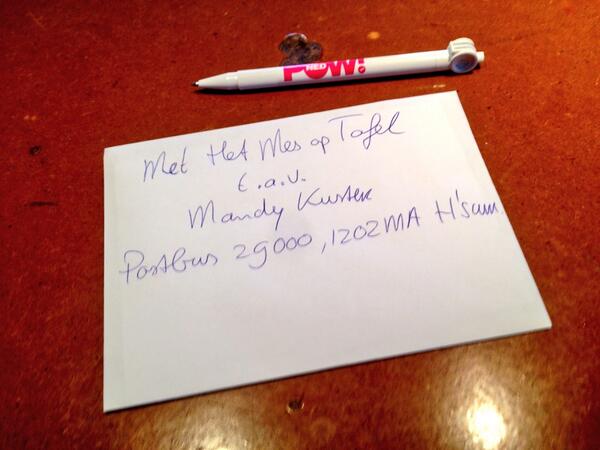 POWNED!
Met Het Mes op Tafel
t.a.v.
Mandy Kuster
Postbus 29000, 1202MA H'sum